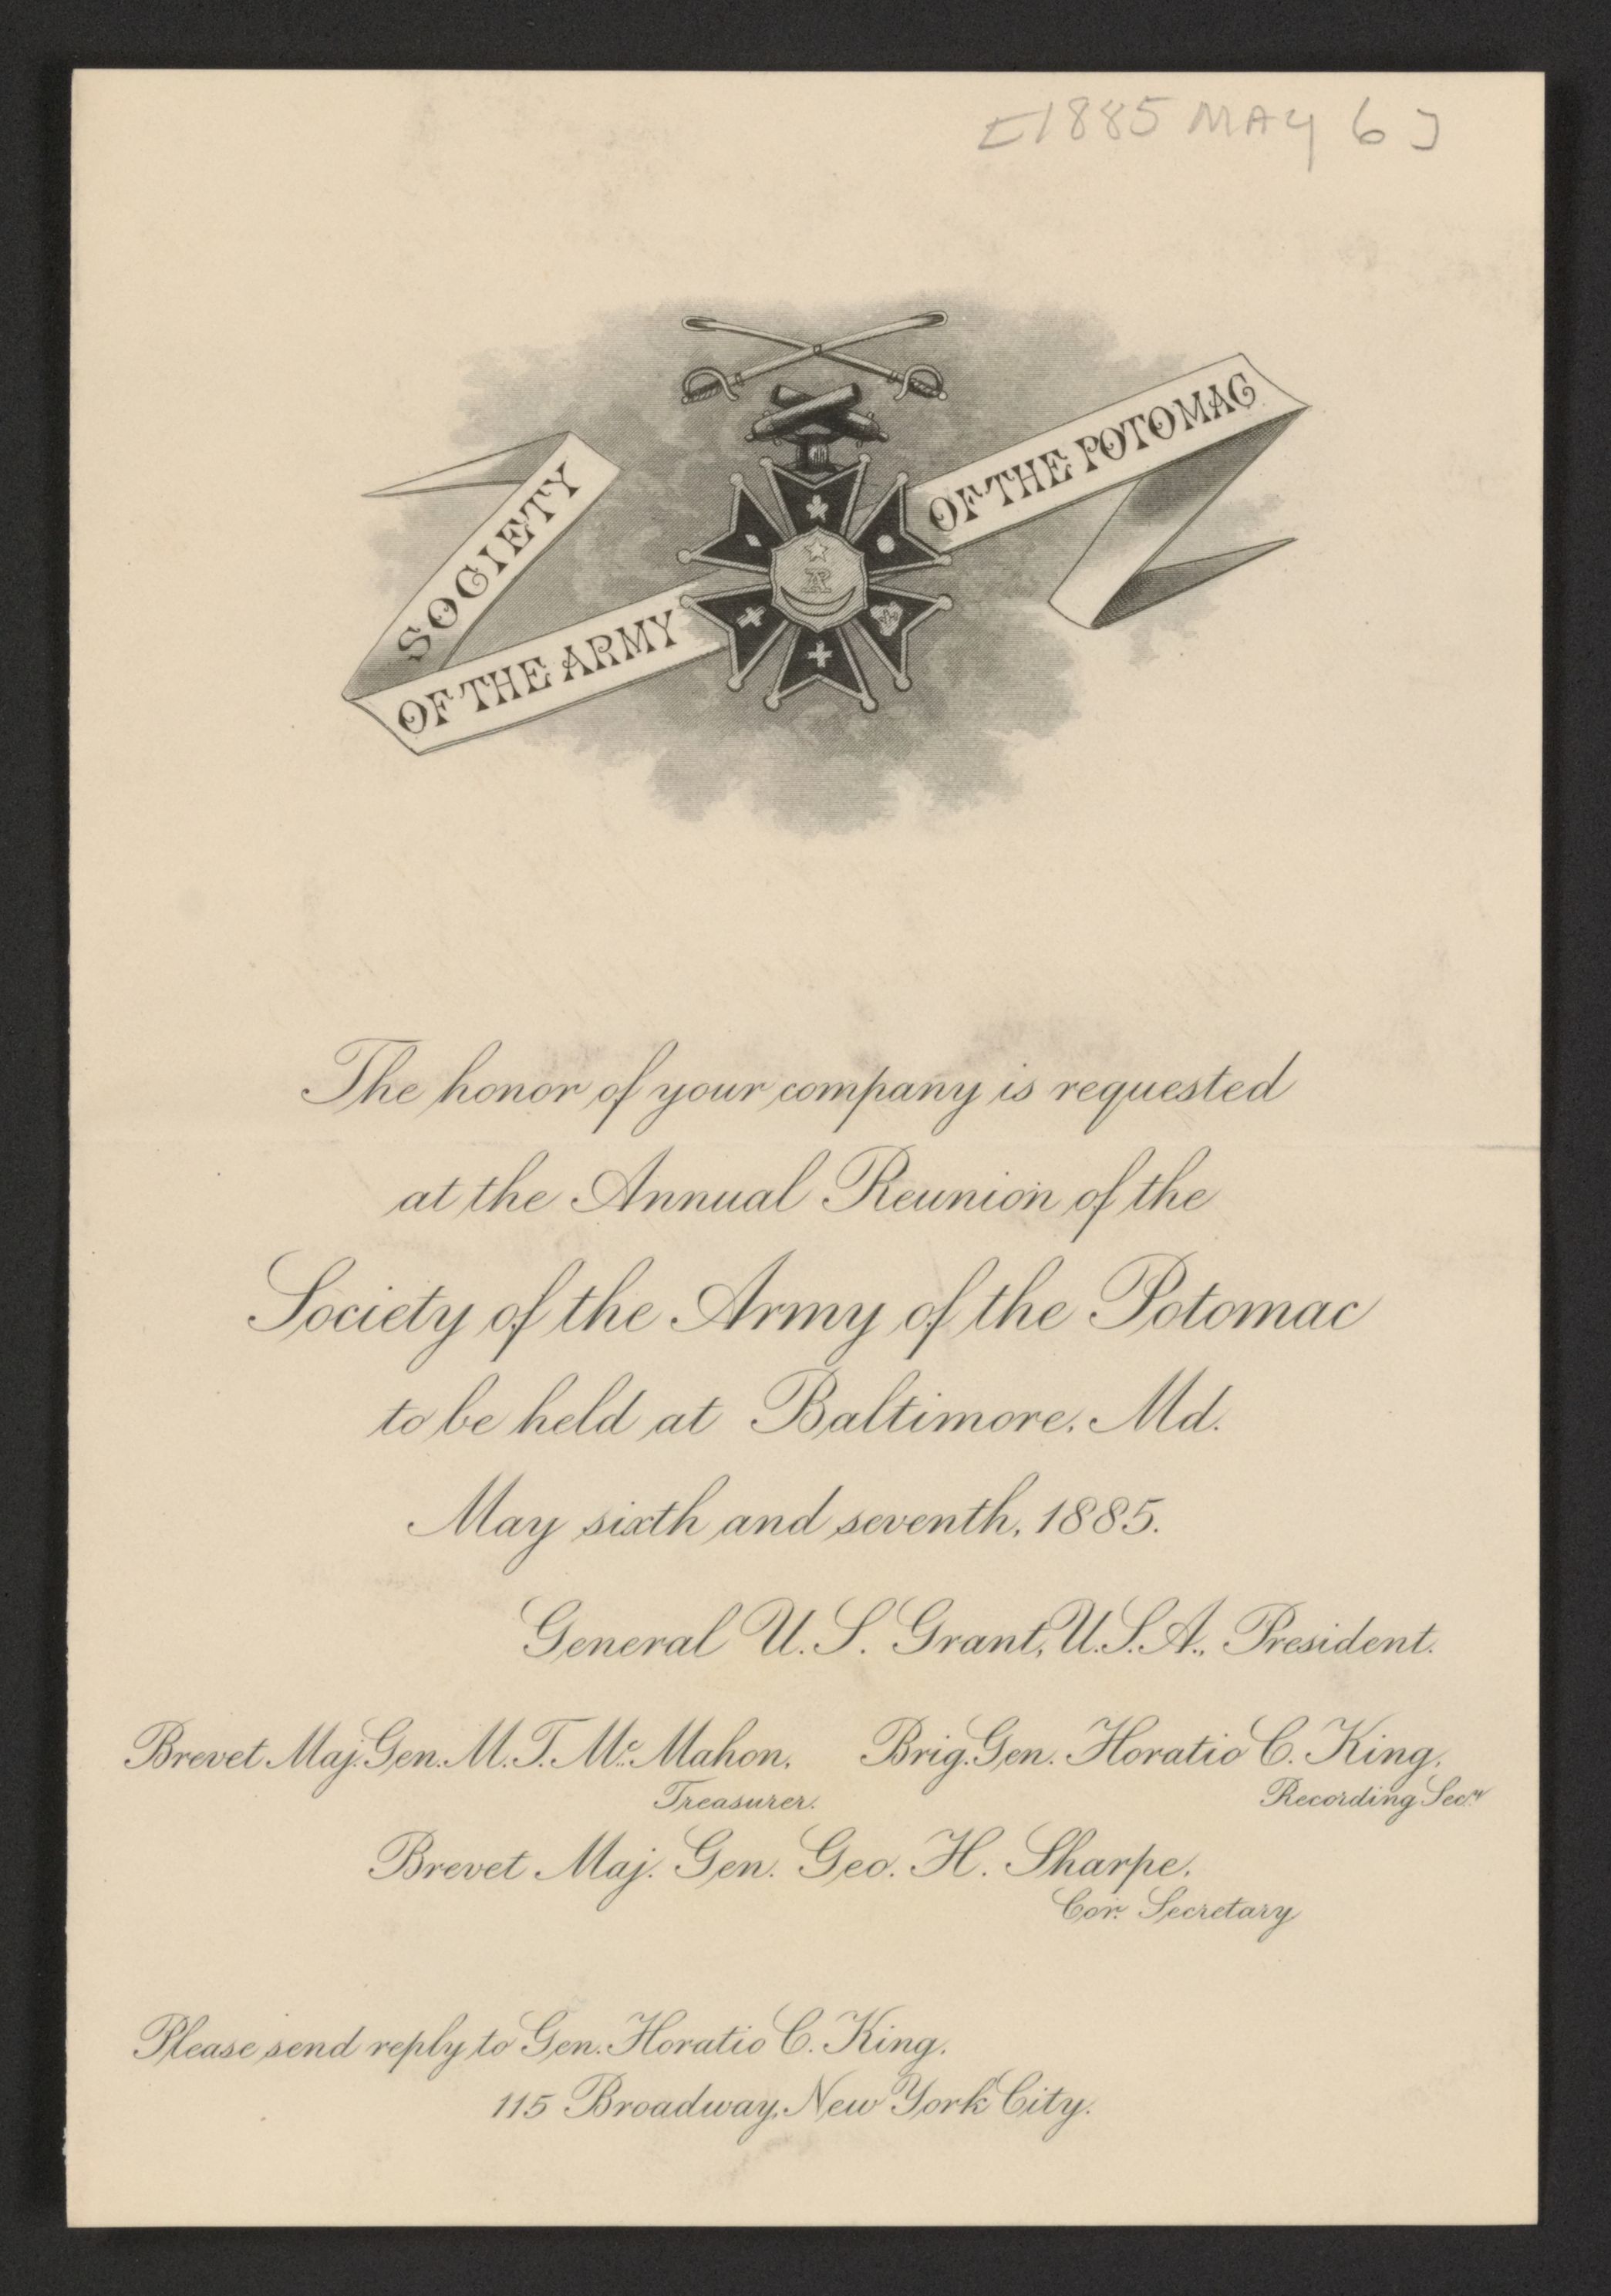 [1885 MAY 6]
SOCIETY
OF THE ARMY
OF THE POTOMAC
The honor of your company is requested
at the Annual Reunion of the
Society of the Army of the Potomac
to be held at Baltimore. Md.
May sixth and seventh, 1885.
General U.S. Grant, U.S.A., President.
Brevet Maj. Gen. M.T. Mc Mahon, Brig. Gen. Horatio C. King,
Treasurer. Recording Secy.
Brevet Maj. Gen. Geo. H. Sharpe,
Cor. Secretary
Please send reply to Gen. Horatio C. King,
115 Broadway, New York City.